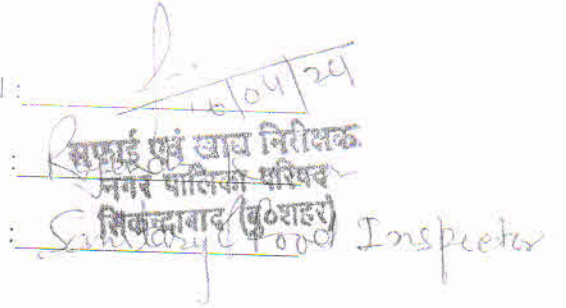 16/04/24
सफाई एवं खाद्य निरीक्षक
नगर पालिका परिषद
सिकन्द्राबाद (बु०शहर)
Sanitary & Food Inspector